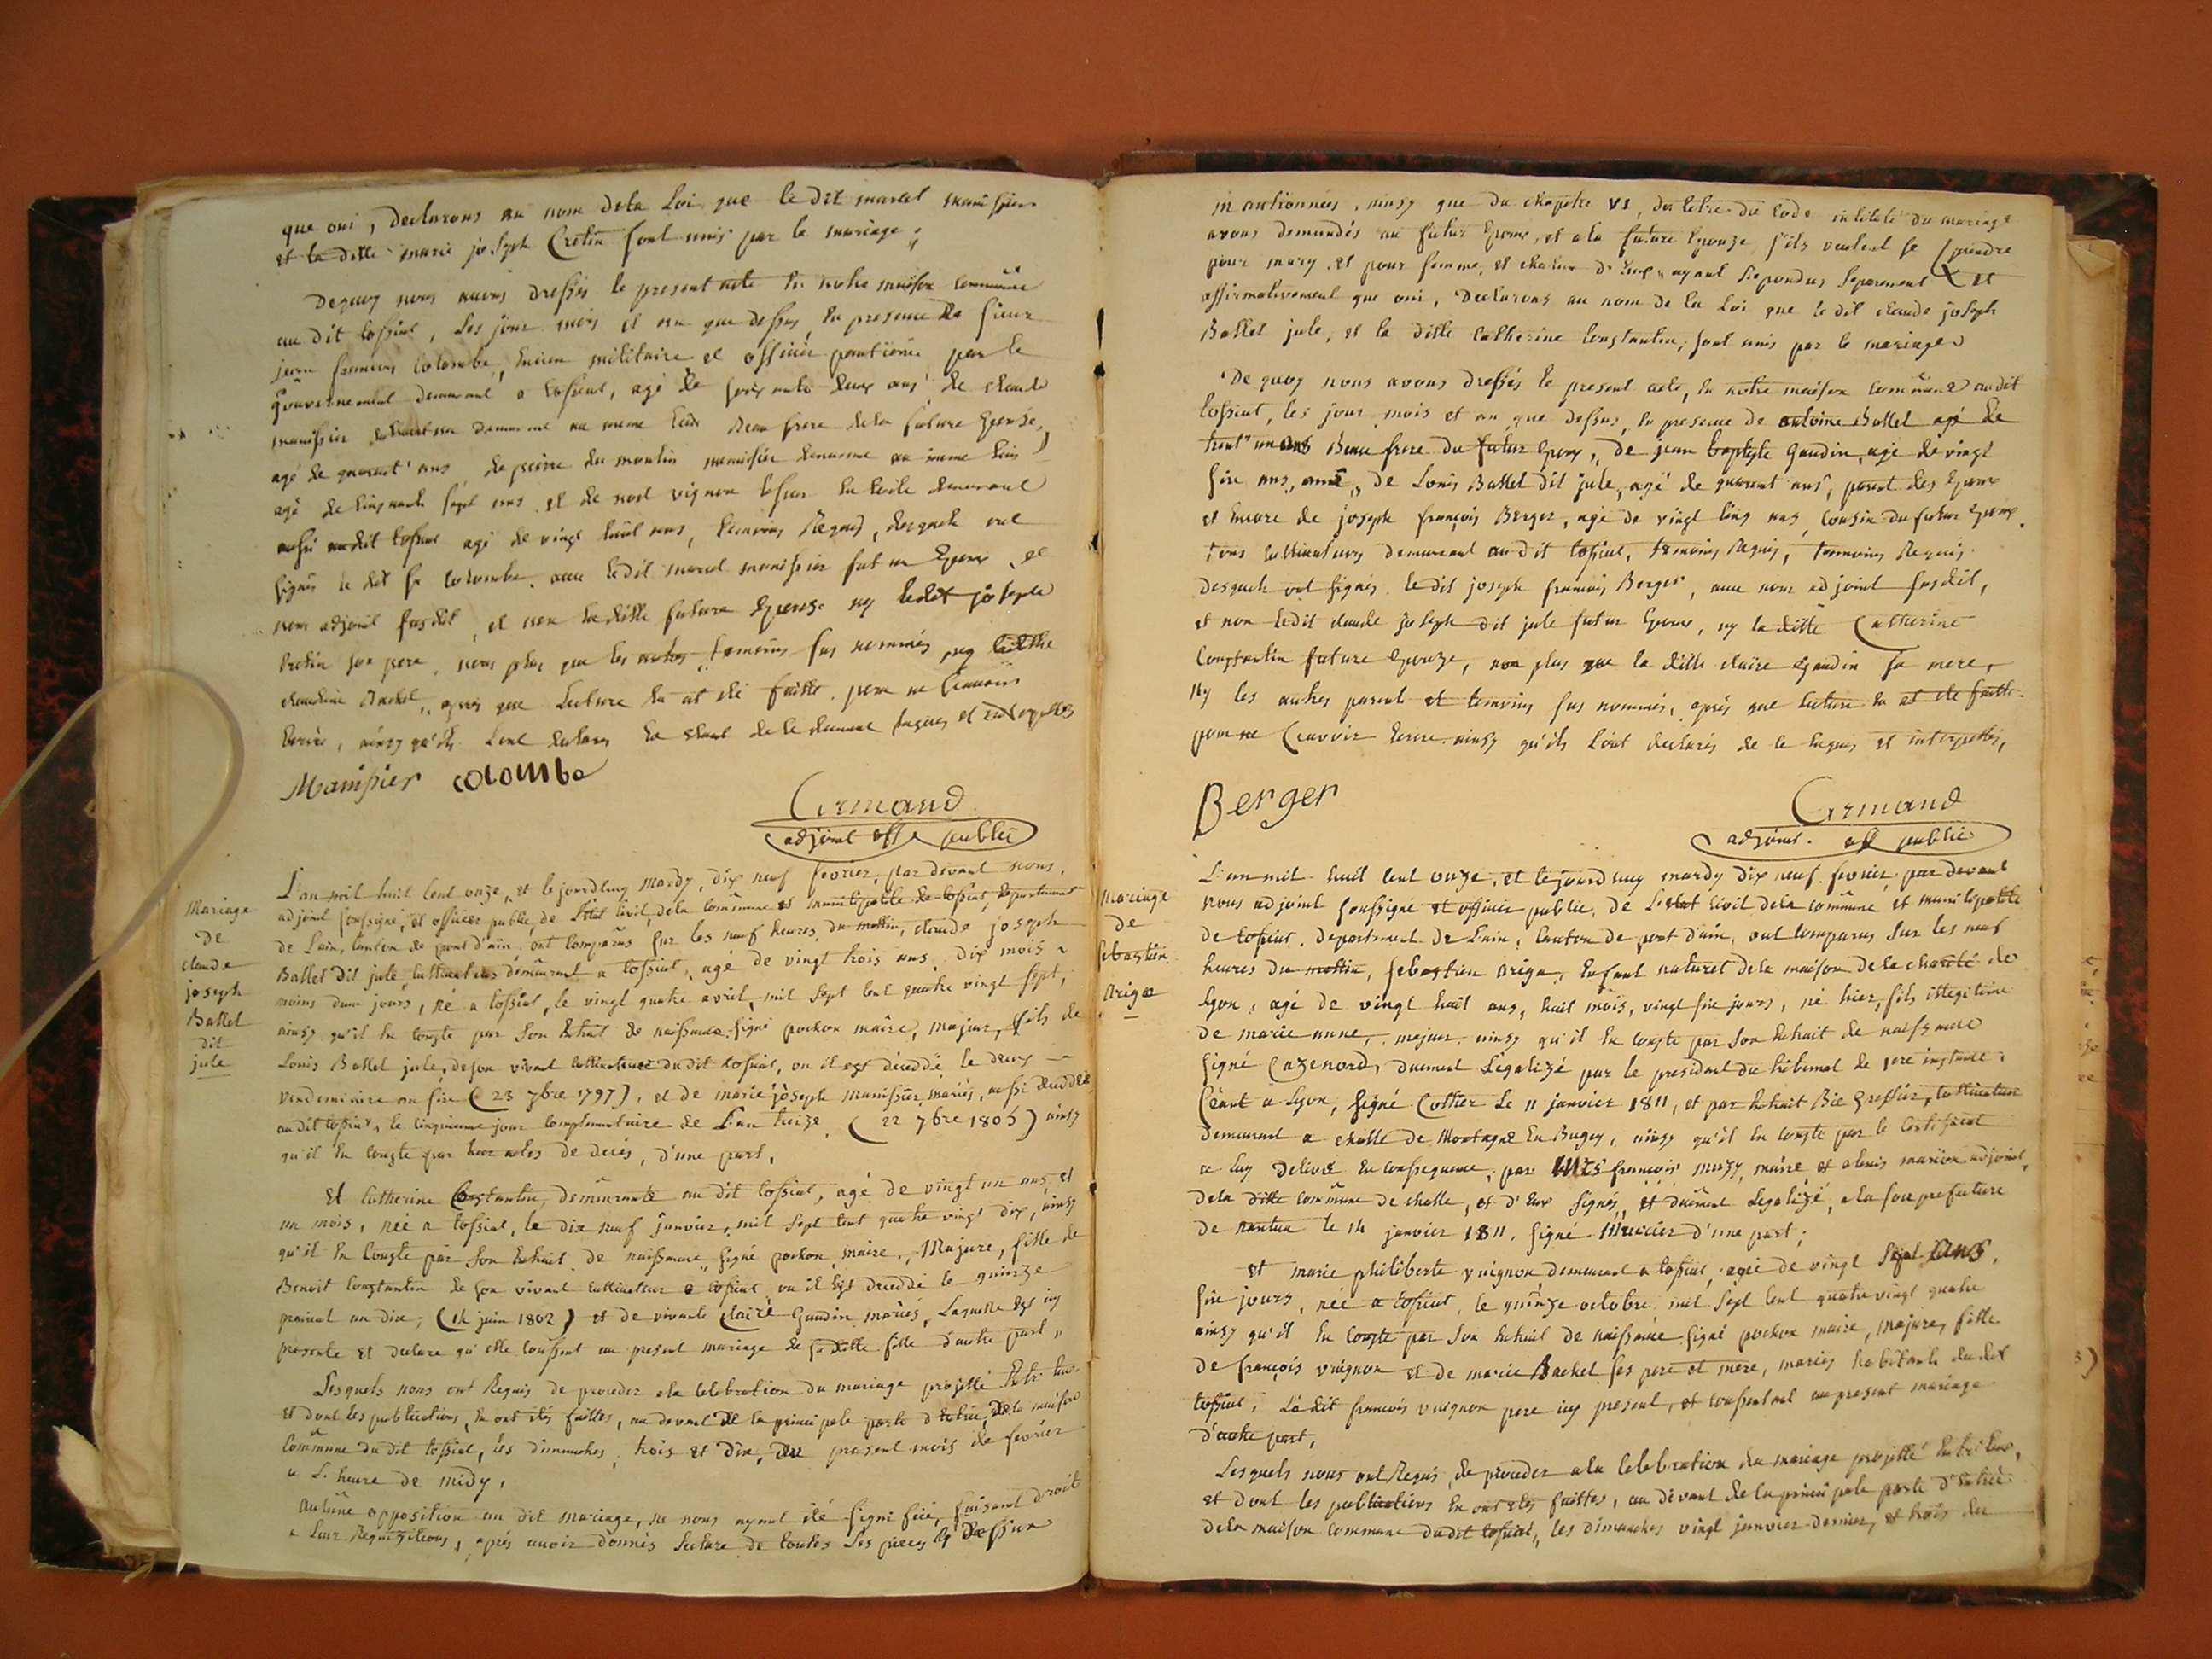 que oui, Declarons au nom dela Loi que le dit marcel manissier
et la ditte marie joseph Cretin sont unis par le mariage;
Dequoy nous avons dressés le present acte en notre maison commune
au dit tossiat, Les jour mois et an que dessus, en presence de sieur
jean francois Colombe, ancien militaire et officier par le
Gouvernement demeurant a tossiat, agé de soixante deux ans de claude
manissier demeurant au meme lieu Beau frere dela future Epouse,
agé de quarant' ans de pierre du moulin menuisier demeurant au meme lieu
agé de cinquante sept ans et de noel vignon tissier en toile demeurant
aussi audit tossiat agé de vingt huit ans, temoins Requis, desquels ont
signés le dit sr colombe avec ledit marcel manissier futur Epoux, et
nous adjoint susdit, et non la ditte future Epouse ny ledit joseph
Cretin son pere, non plus que les autres temoins sus nommés, ny laditte
claudine Bachel, apres que Lecture en at été faitte pour ne scavoir
Ecrire, ainsy qu'ils L'ont declarés de le Enquis et interpellés
Manissier colombe
Armand
adjoint off public
Mariage
De
claude
joseph
Ballet
dit
jule
L'an mil huit cent onze, et le jourdhuy Mardy, dix neuf fevrier, par devant nous,
adjoint soussigné, et officier public, de L'état civil, dela commune et municipalité de tossiat, departement
de L'ain, canton de pont d'ain, ont comparus sur les neuf heures du mattin, claude joseph
Ballet dit jule, cultivateur demeurant a tossiat, agé de vingt trois ans, dix mois
moins deux jours, né a tossiat, le vingt quatre avril, mil sept cent quatre vingt sept,
ainsy qu'il en conste par son Extrait de naissance signé pochon maire, majeur, fils de
Louis Ballet jule, de son vivant cultivateur du dit tossiat, ou il est décédé le deux
vendemiaire an six (23 7bre 1797), et de marie joseph manissier, mariés, aussi decedée
audit tossiat, le cinquieme jour complementaire de L'an treize, (22 7bre 1805) ainsy
qu'il en conste par leurs actes de decés, d'une part,
Et Catherine Constantin, demeurante au dit tossiat, agé de vingt un ans, et
un mois, née a tossiat, le dix neuf janvier, mil sept cent quatre vingt dix, ainsy
qu'il en conste par son Extrait de naissance, signé pochon maire, Majure, fille de
Benoit Constantin de son vivant cultivateur a tossiat ou il est decedé le quinze
prairial an dix, (14 juin 1802) et de vivante Claire Gaudin mariés, Laquelle est icy
presente et declare qu'elle consent au present mariage de sa ditte fille d'autre part,
Lesquels nous ont Requis de proceder ala celebration du mariage projetté Entr'eux
et dont les publications, en ont etés faittes, au devant de la principale porte d'Entrée, de la maison
commune du dit tossiat, les dimanches, trois et dix, du present mois de fevrier
a L'heure de midy,
Aucune opposition au dit mariage, ne nous ayant été signifiée, faisant droit
a leur Requizitions, aprés avoir donnés Lecture de toutes Les pieces cy dessus
mentionnées, ainsy que du chapitre VI, du titre du code intitulé du mariage
avons demandés au futur Epoux, et ala future Epouze, s'ils veulent se prendre
pour mary, et pour femme, et chacun d'Eux ayant Repondus separement et
affirmativement que oui, Declarons au nom de la Loi que le dit claude joseph
Ballet jule, et la ditte Catherine Constantin, sont unis par le mariage
De quoy nous avons dressés le present acte, en notre maison commune audit
tossiat, les jour mois et an que dessus, en presence de antoine Ballet agé de
trent' un ans Beau frere du futur Epoux, De jean baptyste Gaudin, agé de vingt
six ans, ami, de Louis Ballet dit jule, agé de quarant ans, parent des Epoux
et Encore de joseph françois Berger, agé de vingt cinq ans, cousin du futur Epoux,
tous cultivateurs demeurant au dit tossiat, temoins Requis, temoins Requis
desquels ont signés, ledit joseph francois Berger, avec nous adjoint susdit,
et non ledit claude joseph dit jule futur Epoux, ny la ditte Catherine
Constantin future Epouze, non plus que la ditte claire Gaudin sa mere,
ny les autres parents et temoins sus nommés, aprés que lecture en at ete faitte
pour ne scavoir Ecrire ainsy qu'ils L'ont declarés de le Enquis et interpellés,
Berger
Armand
adjoint off public
Mariage
De
Sebastien
Ariga
L'an mil huit cent onze, et le jourdhuy mardy dix neuf fevrier par devant
nous adjoint soussigné et officier public, de L'etat civil dela commune et municipalité
de tossiat, departement de L'ain, canton de pont d'ain, ont comparus sur les neuf
heures du mattin, sebastien ariga, Enfant naturel dela maison dela charité de
Lyon, agé de vingt huit ans, huit mois, vingt six jours, né hier, fils illegitime
de marie anne, majeur ainsy qu'il en conste par son Extrait de naissance
signé Cazenord, duement Légalizé par le president du tribunal de 1ere instance
séant a Lyon, signé Cothier Le 11 janvier 1811, et par Extrait Bié Greffier, cultivateur
demeurant a challe de Montagne en Bugey, ainsy qu'il en conste par le certificat
a luy delivré en consequence, par françois muzy, maire et alexis marion adjoint,
dela ditte commune de challe, et d'eux signés, et duement Legalizé, ala souprefecture
de nantua le 14 janvier 1811, signé Mercier d'une part;
et marie philiberte vuignon demeurant a tossiat, agée de vingt sept ans,
six jours, née a tossiat, le quinze octobre mil sept cent quatre vingt quatre
ainsy qu'il en conste par son Extrait de naissance signé pochon maire, majure, fille
de françois vuignon et de marie Bachel ses pere et mere, mariés habitants du dit
tossiat, Ledit francois vuignon pere icy present, et consentant au present mariage
d'autre part,
Lesquels nous ont Requis, de proceder ala celebration du mariage projetté Entr'eux,
et dont les publications en ont etés faittes, au devant de la principale porte d'Entrée
dela maison commune dudit tossiat, les dimanches vingt janvier dernier, et trois du